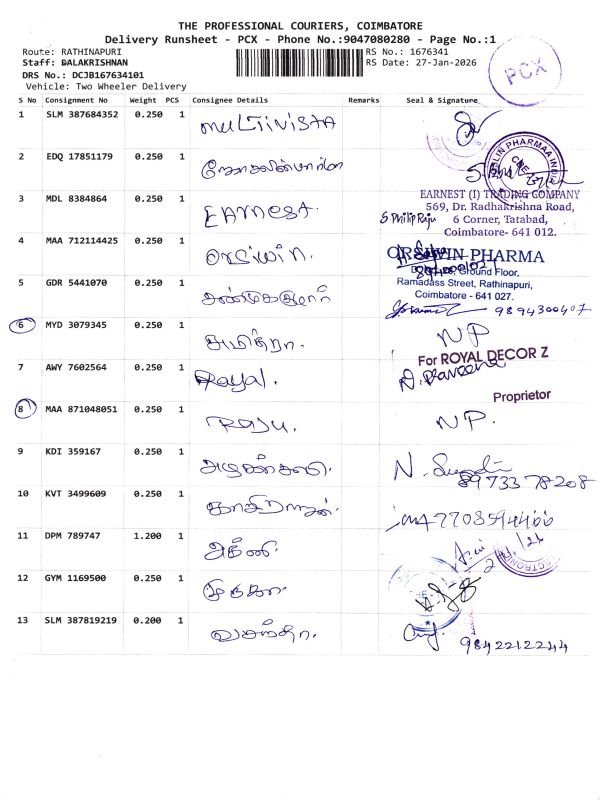 THE PROFESSIONAL COURIERS, COIMBATORE
Delivery Runsheet - PCX - Phone No.:9047080280 - Page No.:1
Route: RATHINAPURI
RS No.: 1676341
Staff: BALAKRISHNAN
RS Date: 27-Jan-2026
DRS No.: DCJB167634101
Vehicle: Two Wheeler Delivery
PCX
S No Consignment No Weight PCS Consignee Details Remarks Seal & Signature
1 SLM 387684352 0.250 1 MULTIVISTA
2 EDQ 17851179 0.250 1
3 MDL 8384864 0.250 1 EARNEST. S Philip Raju
EARNEST (I) TRADING COMPANY
569, Dr. Radhakrishna Road,
6 Corner, Tatabad,
Coimbatore- 641 012.
4 MAA 712114425 0.250 1 Orsiwin.
ORSIWIN PHARMA
Ground Floor,
Ramadass Street, Rathinapuri,
Coimbatore - 641 027.
5 GDR 5441070 0.250 1 சண்முககுமார் 9894300407
6 MYD 3079345 0.250 1 சுமித்ரா. NP
7 AWY 7602564 0.250 1 Royal.
For ROYAL DECOR Z
D. Praveena
Proprietor
8 MAA 871048051 0.250 1 Raju. NP.
9 KDI 359167 0.250 1 8973378208
10 KVT 3499609 0.250 1 காசிராஜன். 7708594466
11 DPM 789747 1.200 1 அக்னி.
12 GYM 1169500 0.250 1
13 SLM 387819219 0.200 1 வசந்தா. 9842212244